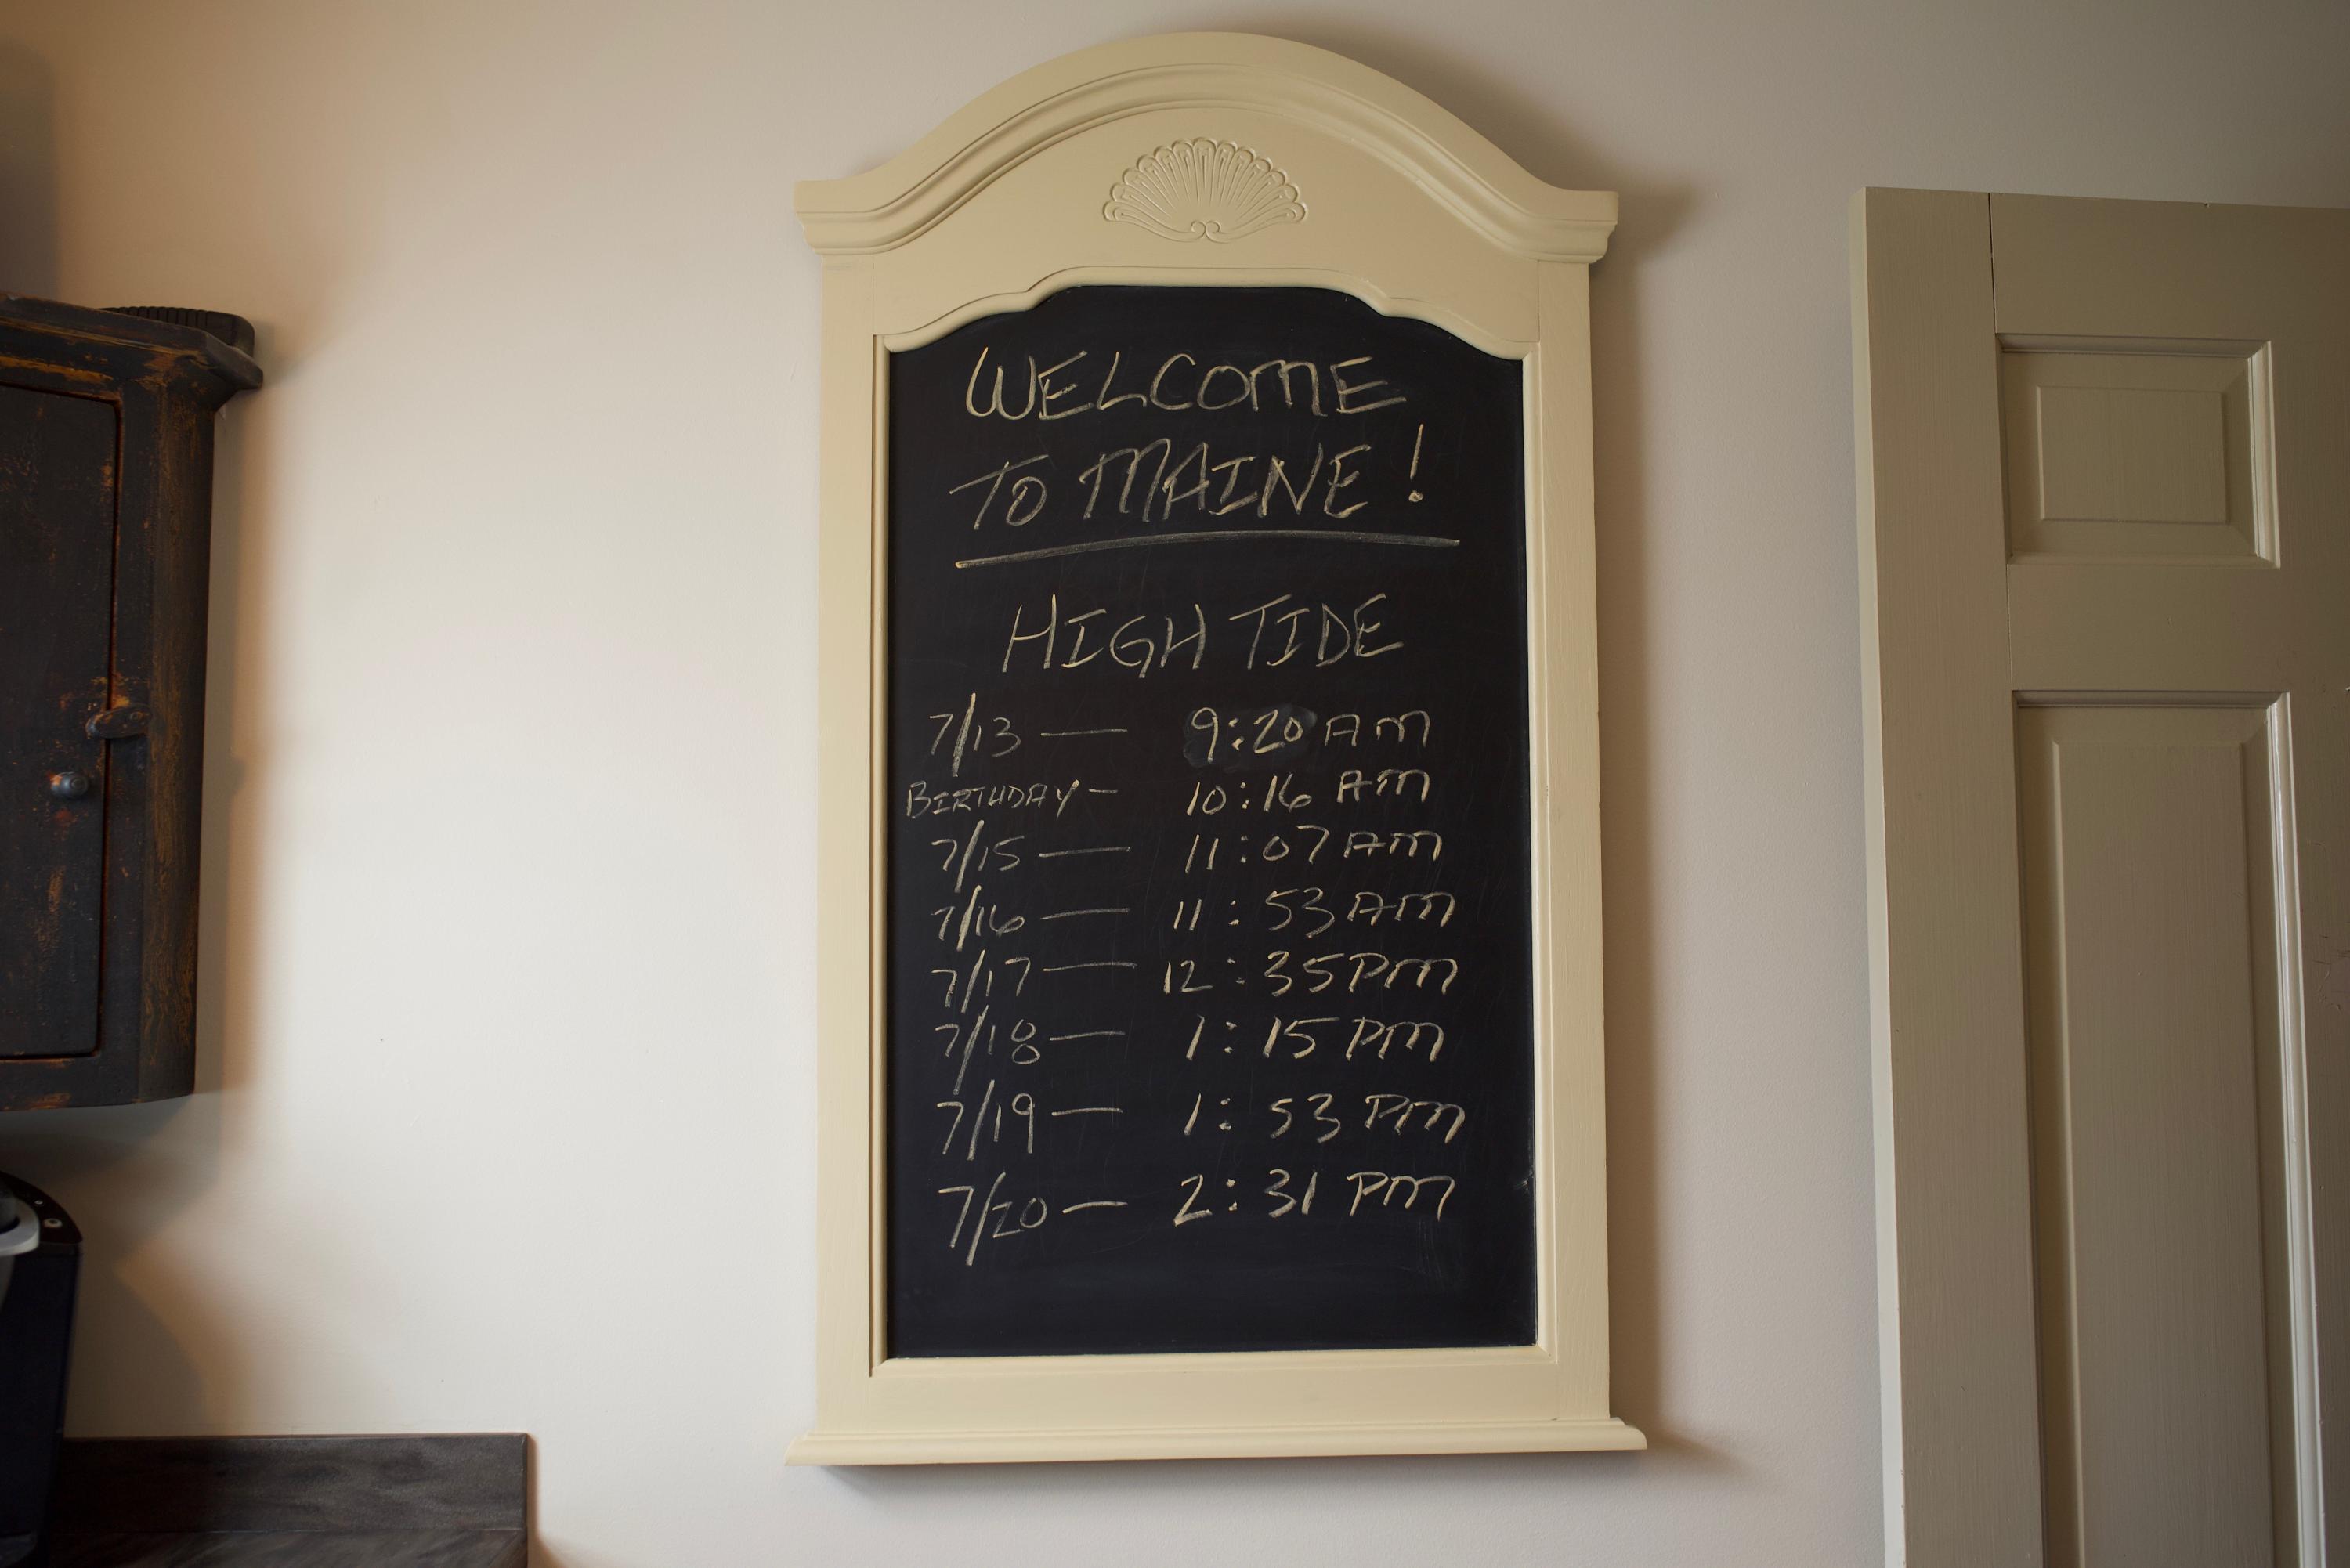 WELCOME
TO MAINE!
HIGH TIDE
7/13 — 9:20 AM
BIRTHDAY — 10:16 AM
7/15 — 11:07 AM
7/16 — 11:53 AM
7/17 — 12:35 PM
7/18 — 1:15 PM
7/19 — 1:53 PM
7/20 — 2:31 PM